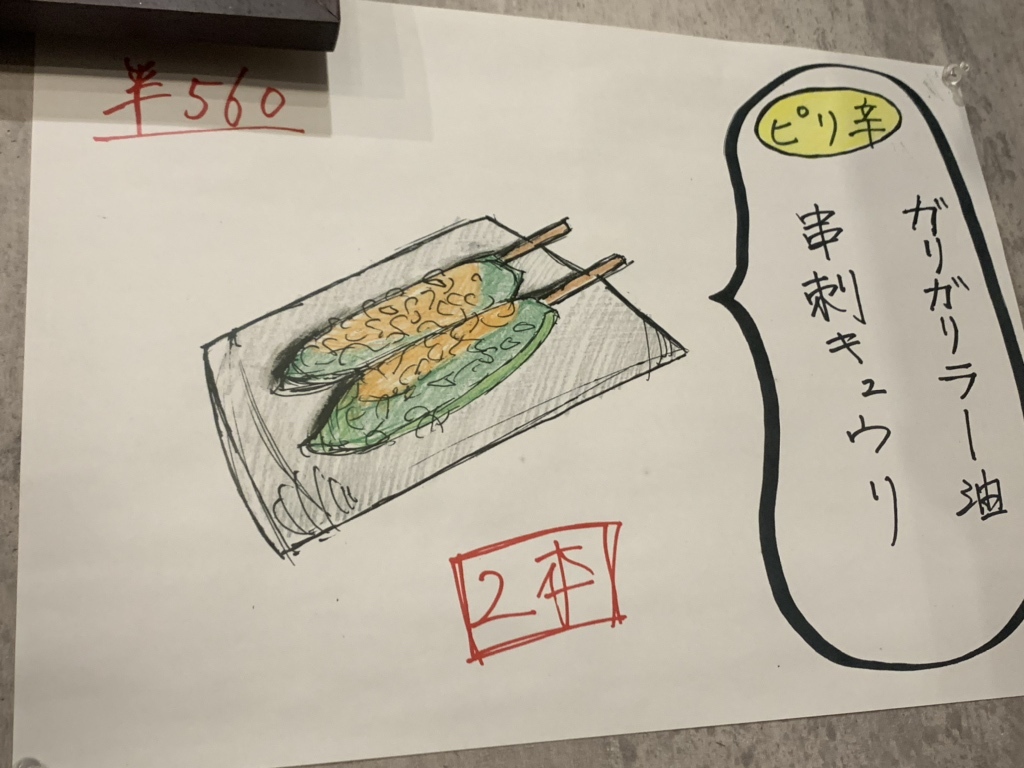 ¥560
ピリ辛
ガリガリラー油
串刺キュウリ
2本